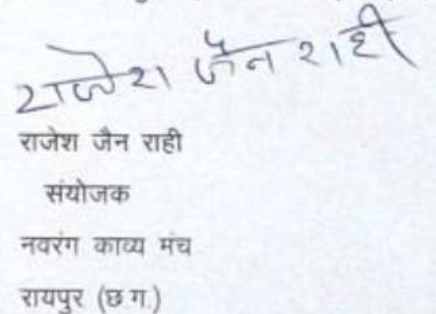 राजेश जैन राही
राजेश जैन राही
संयोजक
नवरंग काव्य मंच
रायपुर (छ ग.)